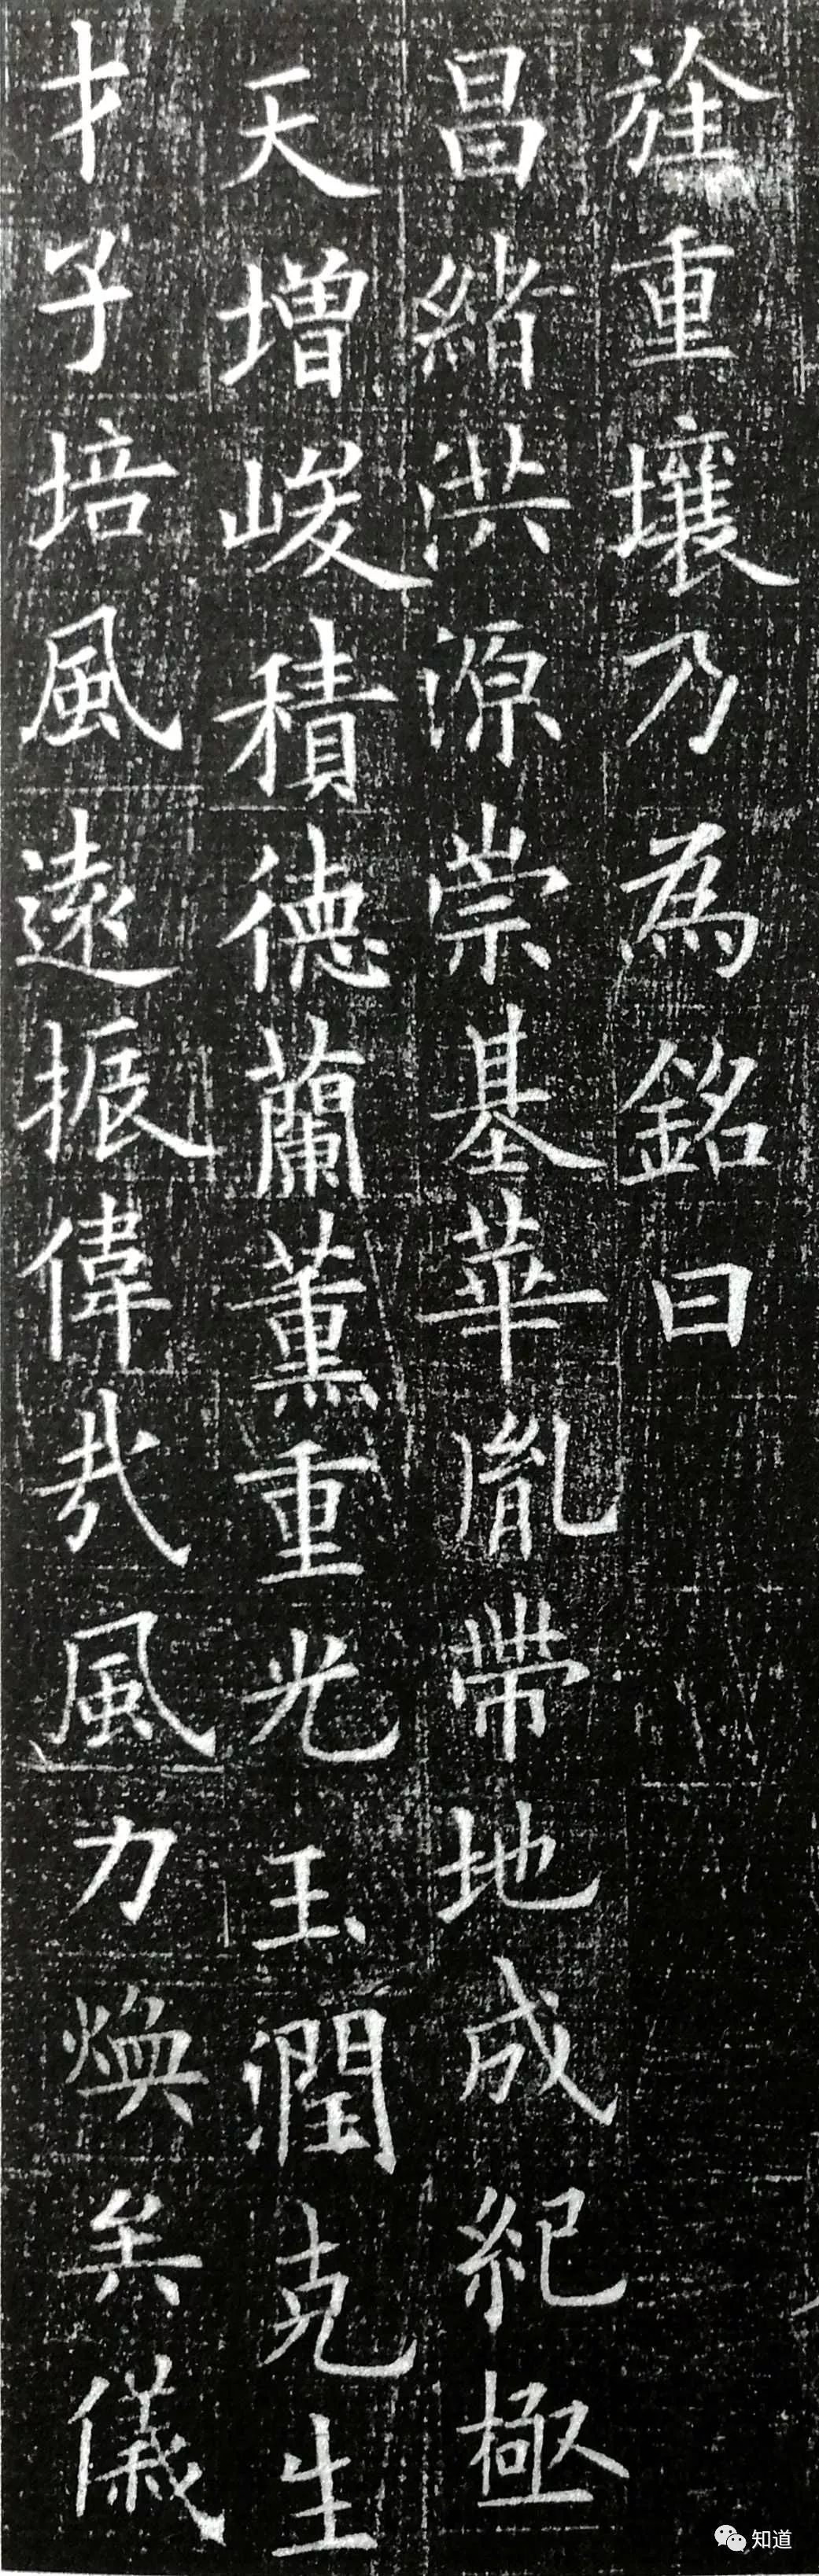 旌重壤乃為銘曰
昌緒洪源崇基華胤帶地成紀極
天增峻積德蘭薰重光玉潤克生
才子培風遠振偉哉風力煥矣儀
知道